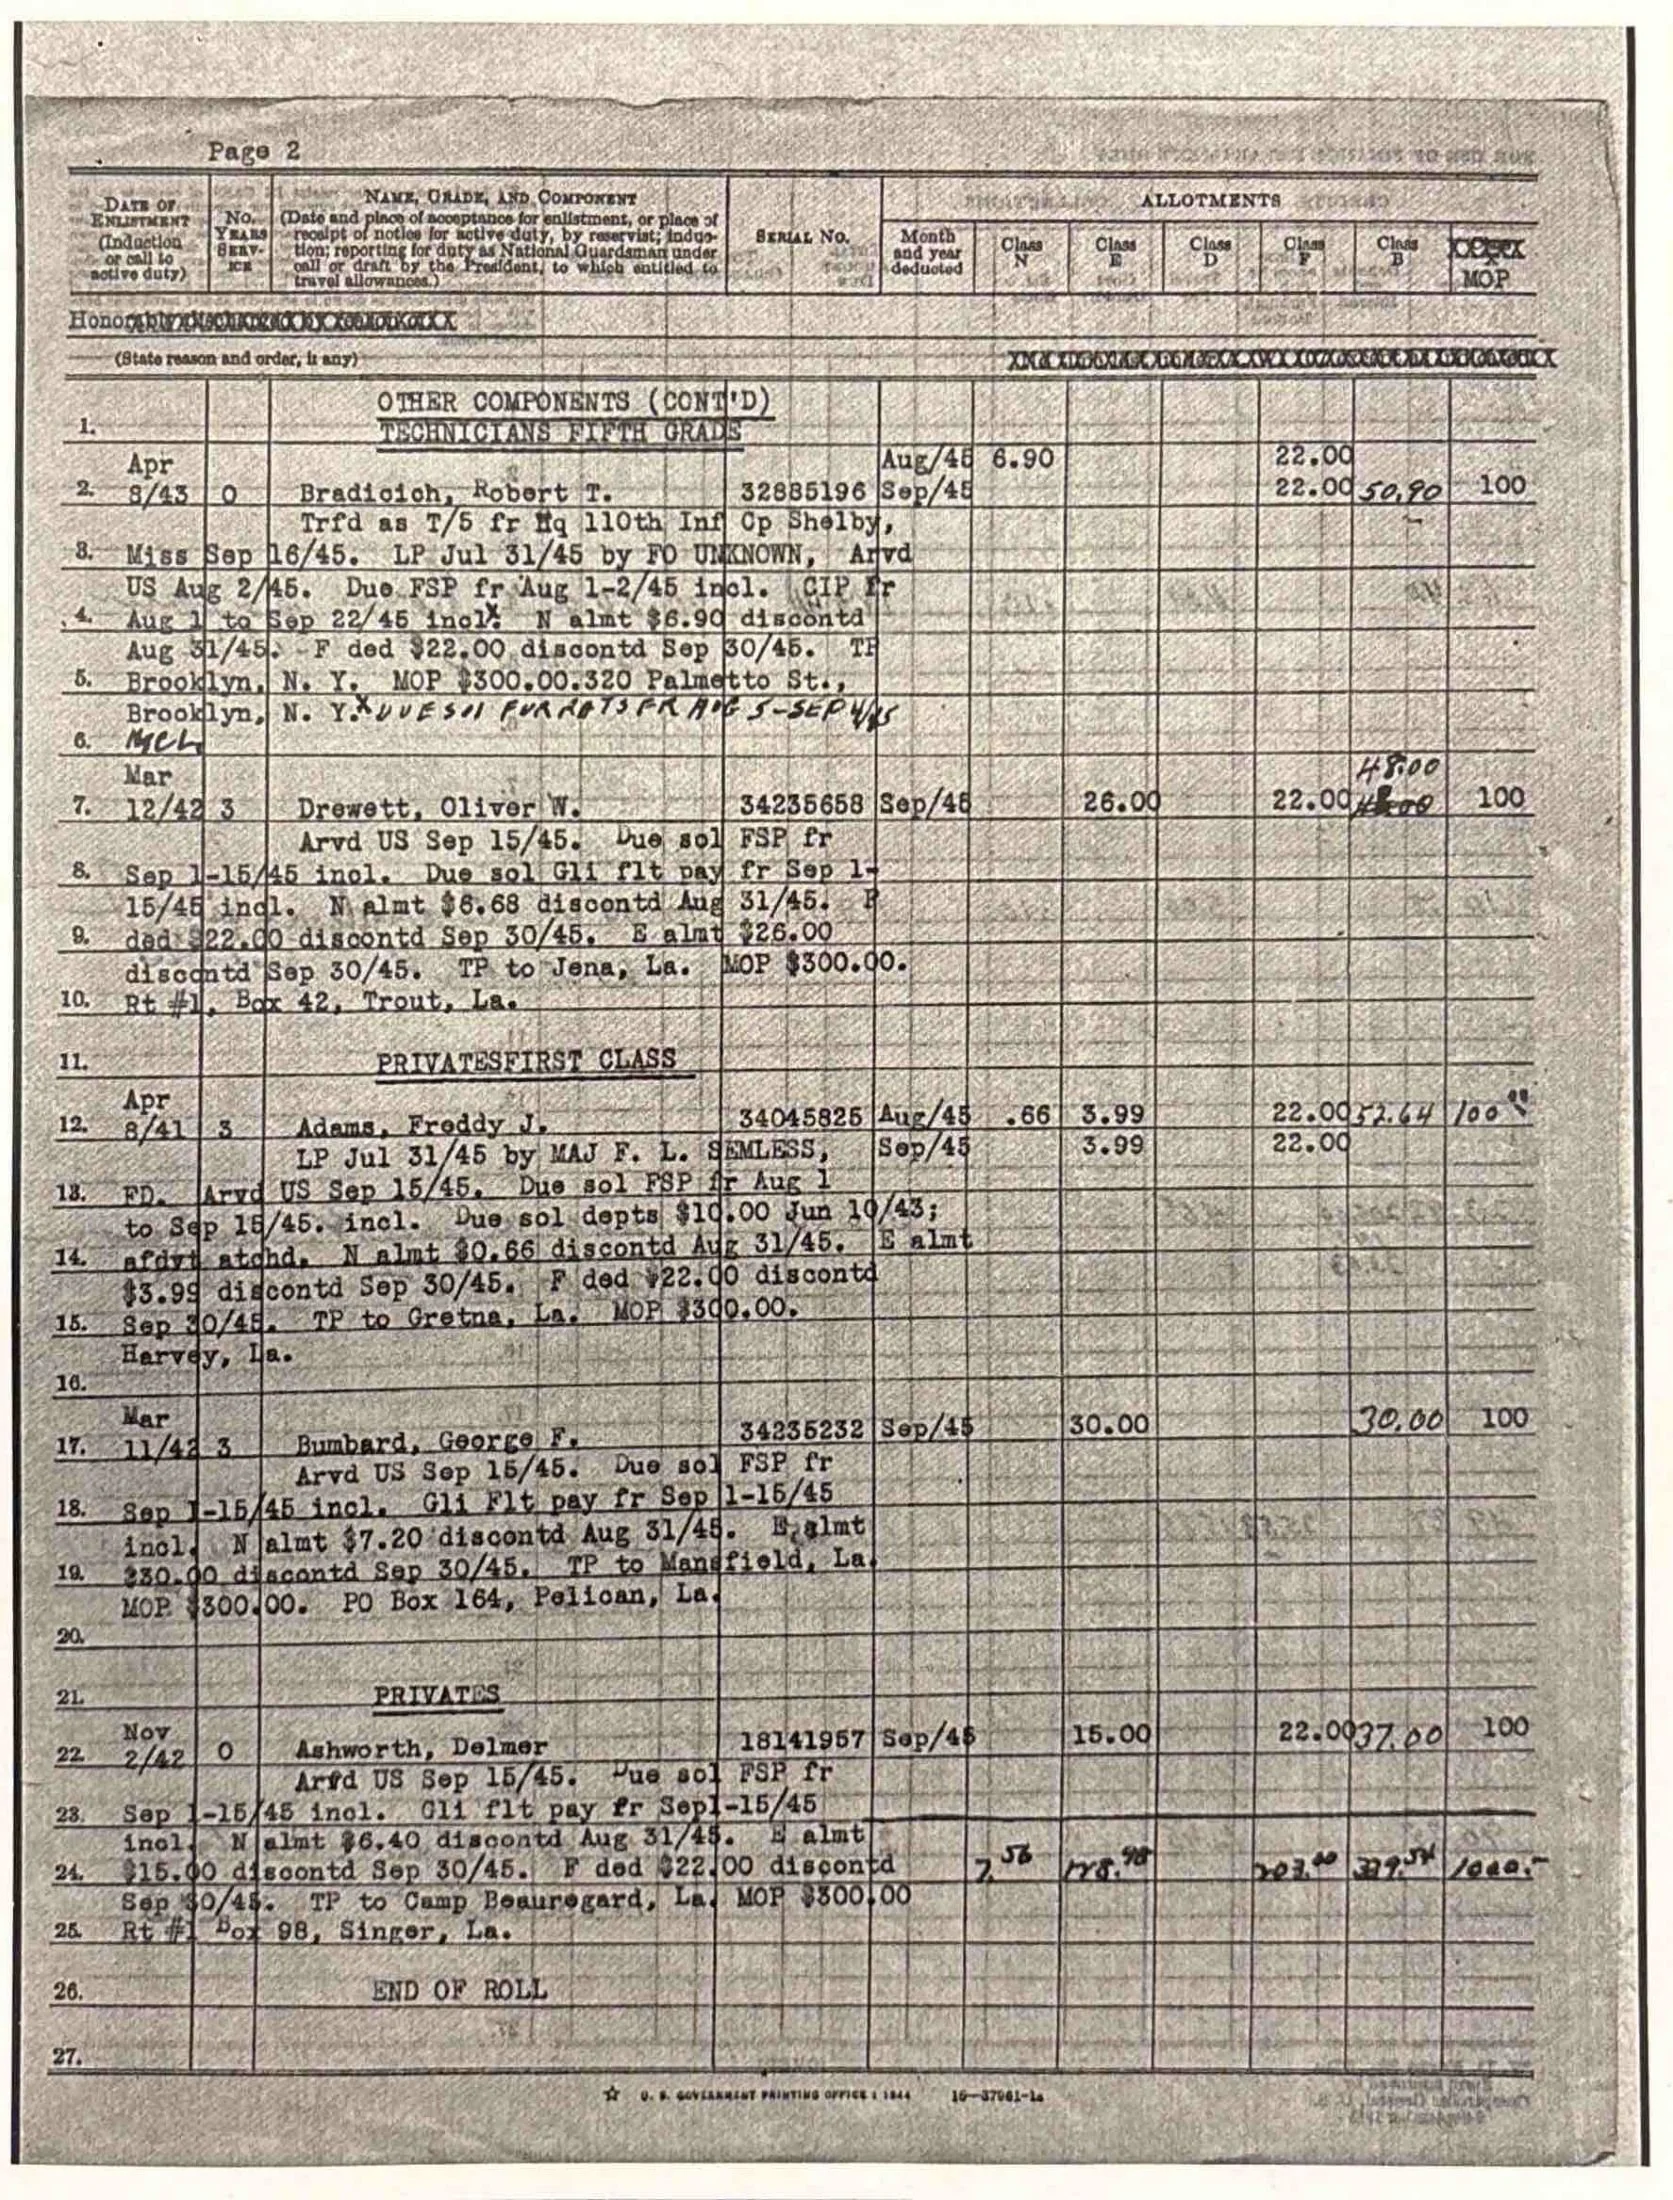 Page 2
DATE OF ENLISTMENT (Induction or call to active duty)
NO. YEARS SERV- ICE
NAME, GRADE, AND COMPONENT
(Date and place of acceptance for enlistment, or place of
receipt of notice for active duty, by reservist; induc-
tion; reporting for duty as National Guardsman under
call or draft by the President, to which entitled to
travel allowances.)
SERIAL NO.
ALLOTMENTS
Month and year deducted
Class N
Class E
Class D
Class F
Class B
MOP
(State reason and order, if any)
OTHER COMPONENTS (CONT'D)
1. TECHNICIANS FIFTH GRADE
Apr Aug/45 6.90 22.00
2. 8/43 0 Bradicich, Robert T. 32885196 Sep/45 22.00 50.90 100
Trfd as T/5 fr Hq 110th Inf Cp Shelby,
3. Miss Sep 16/45. LP Jul 31/45 by FO UNKNOWN, Arvd
US Aug 2/45. Due FSP fr Aug 1-2/45 incl. CIP fr
4. Aug 1 to Sep 22/45 incl. N almt $6.90 discontd
Aug 31/45. F ded $22.00 discontd Sep 30/45. TP
5. Brooklyn, N. Y. MOP $300.00.320 Palmetto St.,
Brooklyn, N. Y. x DUE SOL FUR RATS FR AUG 5-SEP 4/45
6.
Mar 48.00
7. 12/42 3 Drewett, Oliver W. 34235658 Sep/45 26.00 22.00 100
Arvd US Sep 15/45. Due sol FSP fr
8. Sep 1-15/45 incl. Due sol Gli flt pay fr Sep 1-
15/45 incl. N almt $6.68 discontd Aug 31/45. F
9. ded $22.00 discontd Sep 30/45. E almt $26.00
discontd Sep 30/45. TP to Jena, La. MOP $300.00.
10. Rt #1, Box 42, Trout, La.
11. PRIVATESFIRST CLASS
Apr
12. 8/41 3 Adams, Freddy J. 34045825 Aug/45 .66 3.99 22.00 52.64 100
LP Jul 31/45 by MAJ F. L. SEMLESS, Sep/45 3.99 22.00
13. FD. Arvd US Sep 15/45. Due sol FSP fr Aug 1
to Sep 15/45. incl. Due sol depts $10.00 Jun 10/43;
14. afdvt atchd. N almt $0.66 discontd Aug 31/45. E almt
$3.99 discontd Sep 30/45. F ded $22.00 discontd
15. Sep 30/45. TP to Gretna, La. MOP $300.00.
Harvey, La.
16.
Mar
17. 11/42 3 Bumbard, George F. 34235232 Sep/45 30.00 30.00 100
Arvd US Sep 15/45. Due sol FSP fr
18. Sep 1-15/45 incl. Gli Flt pay fr Sep 1-15/45
incl. N almt $7.20 discontd Aug 31/45. E almt
19. $30.00 discontd Sep 30/45. TP to Mansfield, La.
MOP $300.00. PO Box 164, Pelican, La.
20.
21. PRIVATES
Nov
22. 2/42 0 Ashworth, Delmer 18141957 Sep/45 15.00 22.00 37.00 100
Arvd US Sep 15/45. Due sol FSP fr
23. Sep 1-15/45 incl. Gli flt pay fr Sep1-15/45
incl. N almt $6.40 discontd Aug 31/45. E almt
24. $15.00 discontd Sep 30/45. F ded $22.00 discontd 7.56
Sep 30/45. TP to Camp Beauregard, La. MOP $300.00
25. Rt #1 Box 98, Singer, La.
26. END OF ROLL
27.
☆ U. S. GOVERNMENT PRINTING OFFICE : 1944 16—37961-1a